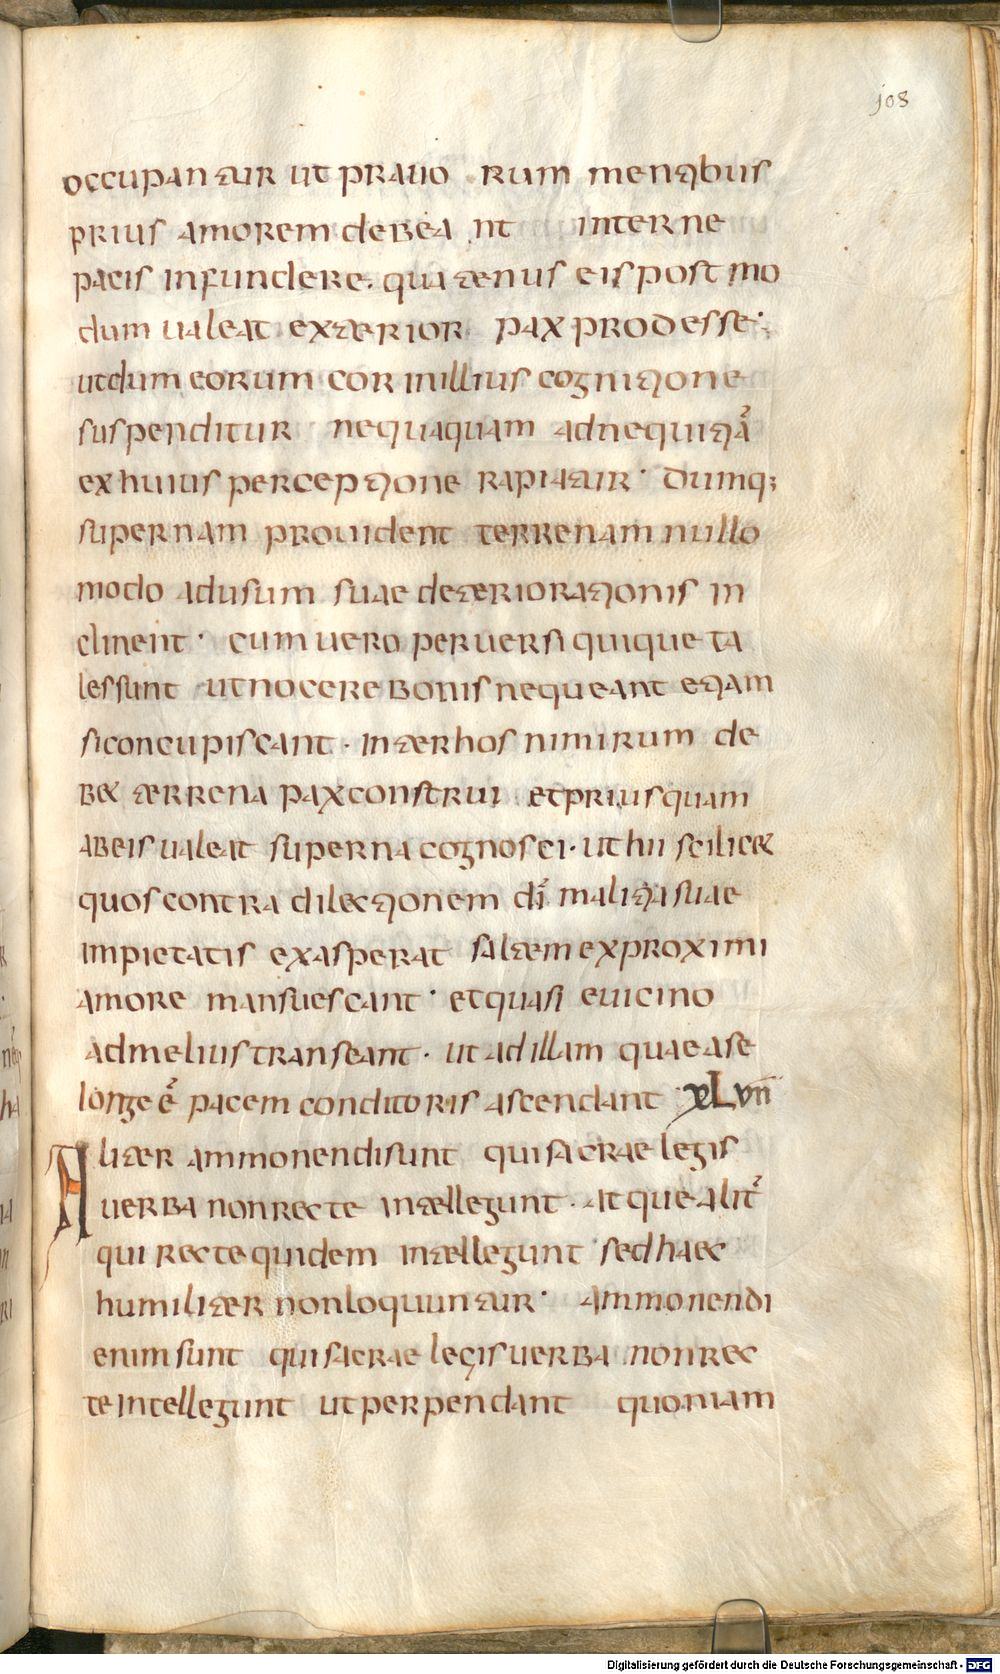 108
occupantur ut prauorum mentibus
prius amorem debeant interne
pacis infundere. quatenus eis postmo
dum ualeat exterior pax prodesse·
ut dum eorum cor inillius cognitione
suspenditur nequaquam ad nequitiā
ex huius perceptione rapiatur· dumq;
supernam prouident terrenam nullo
modo ad usum suae deteriorationis in
clinent· cum uero peruersi quique ta
les sunt ut nocere bonis nequeant etiam
si concupiscant· inter hos nimirum de
b& terrena pax construi et priusquam
ab eis ualeat superna cognosci· ut hii scilic&
quos contra dilectionem dī malitia suae
impietatis exasperat saltem ex proximi
amore mansuescant· et quasi euicino
ad melius transeant· ut ad illam quae a se
longe ē pacem conditoris ascendant xLvii
Aliter ammonendi sunt qui sacrae legis
uerba non recte intellegunt· atque alit̉
qui recte quidem intellegunt sed haec
humiliter non loquuntur· Ammonendi
enim sunt qui sacrae legis uerba non rec
te intellegunt ut perpendant quoniam
Digitalisierung gefördert durch die Deutsche Forschungsgemeinschaft - DFG